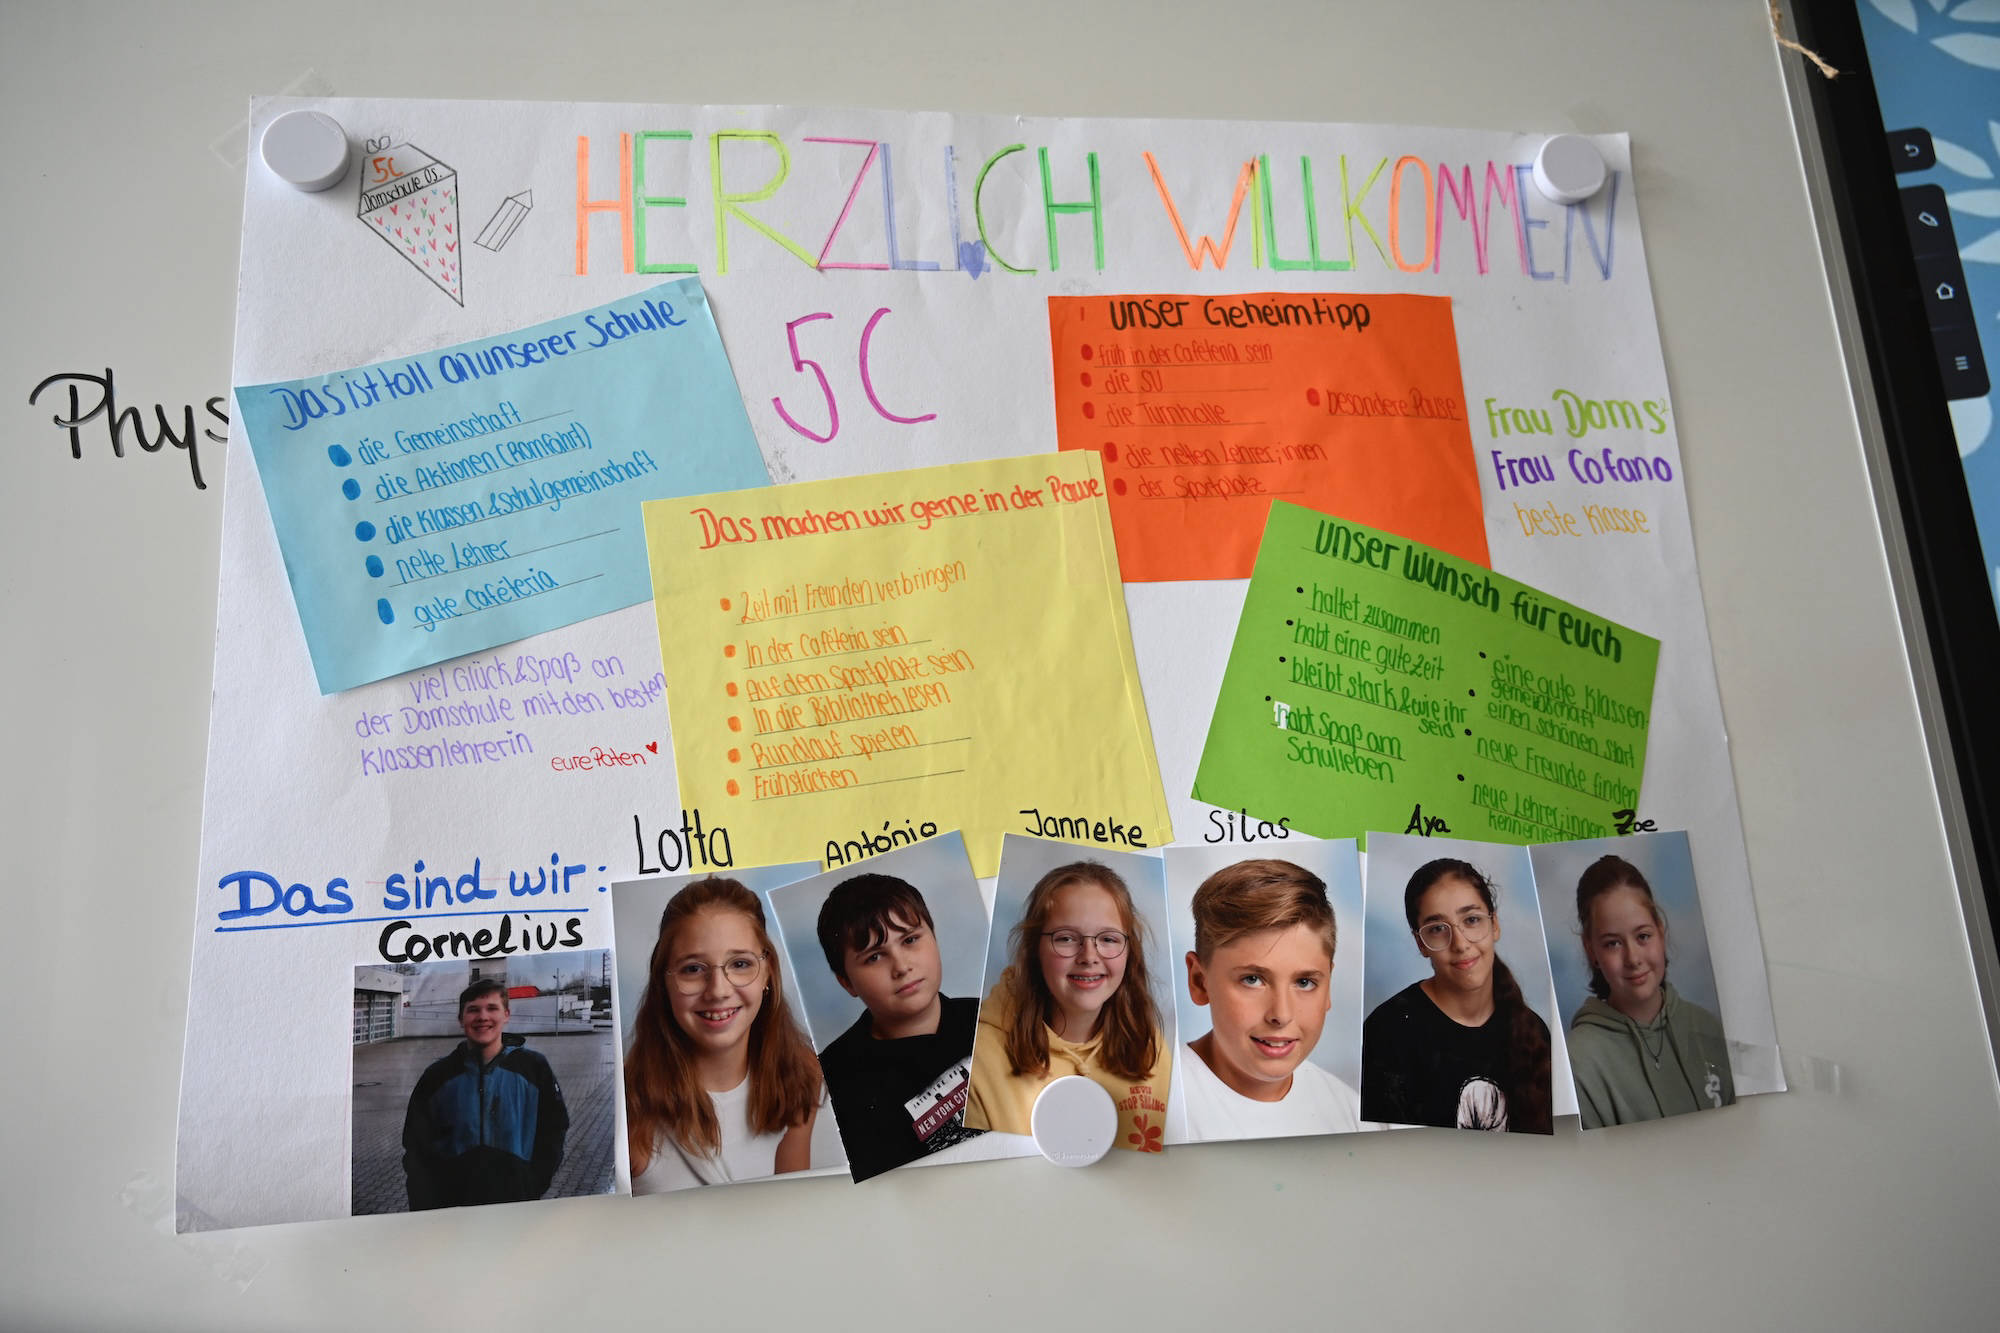 5C
Domschule Os.
HERZLICH WILLKOMMEN
5C
Das ist toll an unserer Schule
die Gemeinschaft
die Aktionen (Romfahrt)
die Klassen & Schulgemeinschaft
nette Lehrer
gute Caféteria
unser Geheimtipp
früh in der Caféteria sein
die SV
die Turnhalle
besondere Pause
die netten Lehrer;innen
der Sportplatz
Frau Doms
Frau Cofano
beste Klasse
Das machen wir gerne in der Pause
Zeit mit Freunden verbringen
In der Caféteria sein
Auf dem Sportplatz sein
In die Bibliothek lesen
Rundlauf spielen
Frühstücken
unser Wunsch für euch
haltet zusammen
habt eine gute Zeit
bleibt stark & wie ihr
seid
habt Spaß am
Schulleben
eine gute Klassen-
gemeinschaft
einen schönen Start
neue Freunde finden
neue Lehrer;innen
viel Glück & Spaß an
der Domschule mit den besten
Klassenlehrerin
eure Paten
Phys
Das sind wir:
Cornelius
Lotta
António
Janneke
Silas
Aya
Zoe
NEW YORK CITY
STOP SAILING